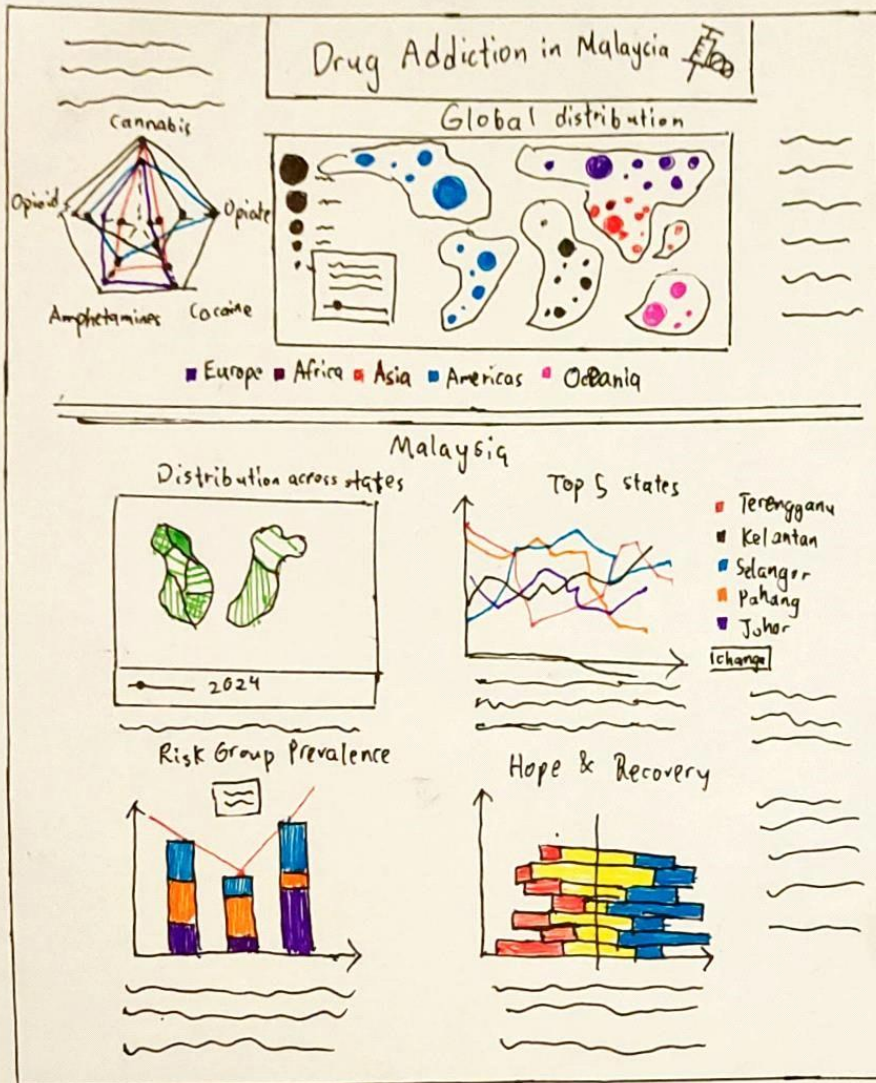 Drug Addiction in Malaycia
Cannabis
Opioid
Opiate
Amphetamines
Cocaine
Global distribution
Europe Africa Asia Americas Oceania
Malaysia
Distribution across states
2024
Top 5 states
Terengganu
Kelantan
Selangor
Pahang
Johor
change
Risk Group Prevalence
Hope & Recovery